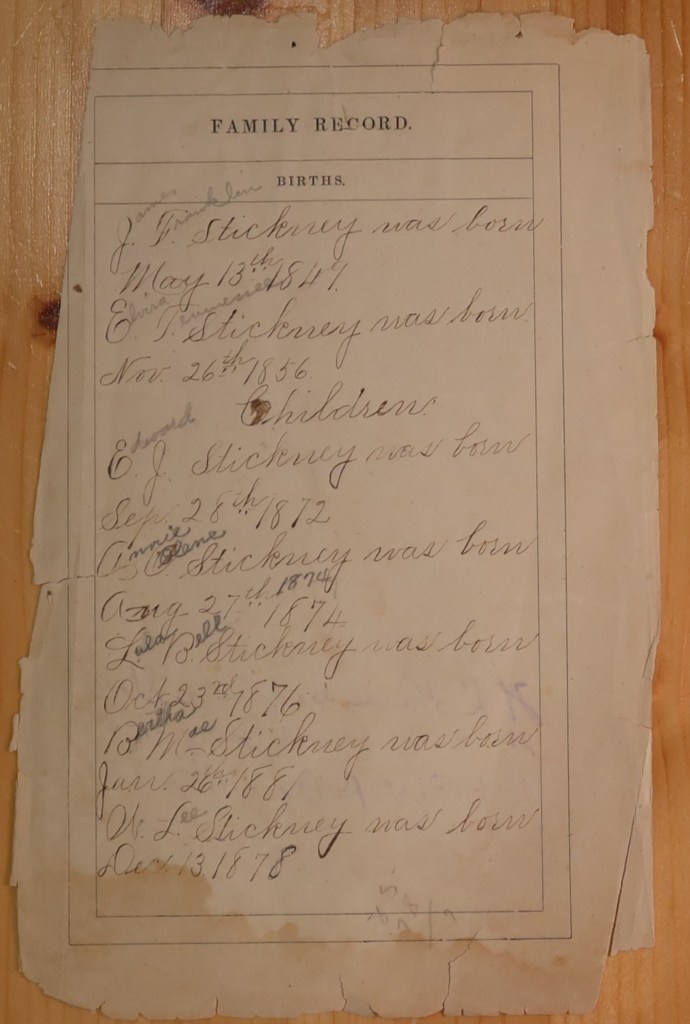 FAMILY RECORD.
BIRTHS.
James Franklin
J. F. Stickney was born
May 13th 1847.
Elvira Tennessee
E. T. Stickney was born
Nov. 26th 1856
Children.
Edward
E. J. Stickney was born
Sep. 28th 1872
Annie
A. Stickney was born
1874
Aug 27th 1874
Lula Bell
L. B. Stickney was born
Oct 23rd 1876
Bertha Mae
B. M. Stickney was born
Jan. 26th 1881
W. Lee Stickney was born
Dec. 13 1878